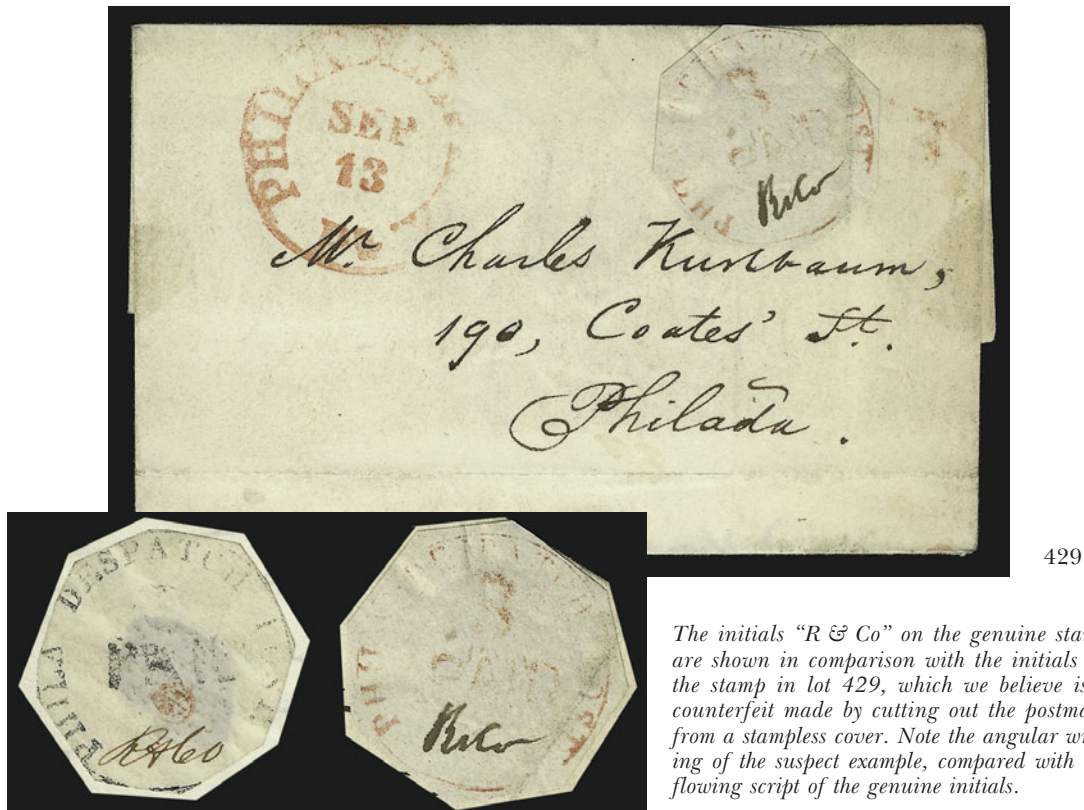 SEP
13
R&Co
Mr. Charles Kurlbaum,
190, Coates' St.
Philada.
429
PHILA DESPATCH POST
PAID
R&Co
R&Co
The initials “R & Co” on the genuine
are shown in comparison with the initials
the stamp in lot 429, which we believe is
counterfeit made by cutting out the
from a stampless cover. Note the angular
ing of the suspect example, compared with
flowing script of the genuine initials.